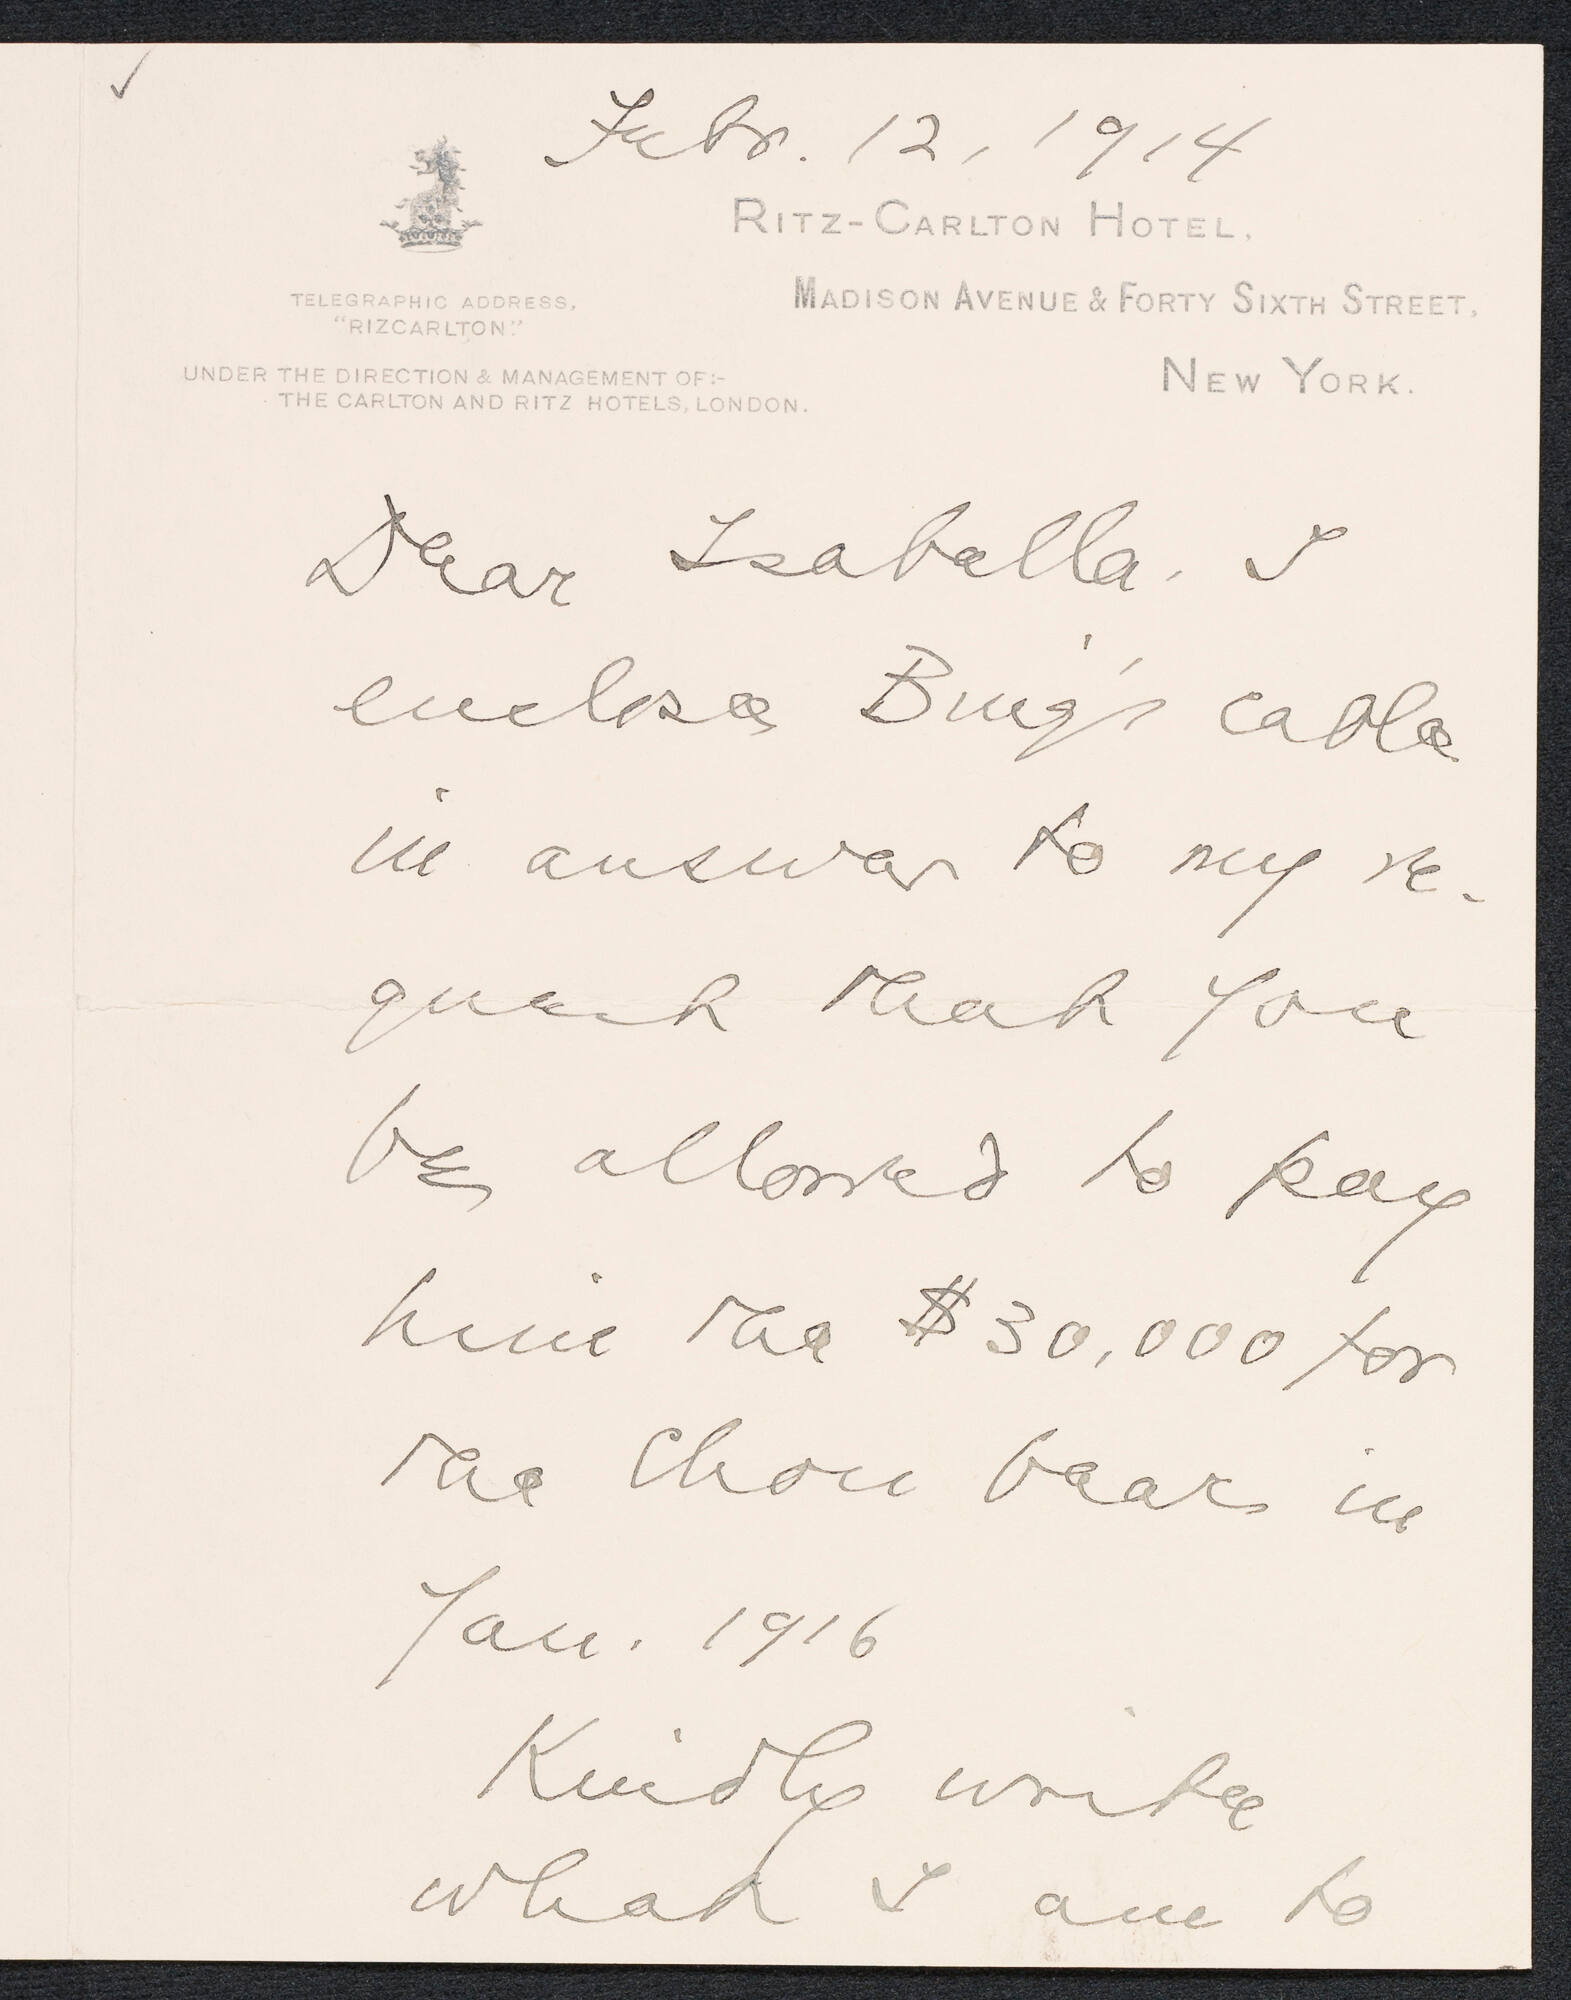 Febr. 12, 1914
RITZ-CARLTON HOTEL,
MADISON AVENUE & FORTY SIXTH STREET,
NEW YORK.
TELEGRAPHIC ADDRESS,
"RIZCARLTON."
UNDER THE DIRECTION & MANAGEMENT OF:-
THE CARLTON AND RITZ HOTELS, LONDON.
Dear Isabella. I
enclose Bing's cable
in answer to my re-
quest that you
be allowed to pay
him the $30,000 for
the Chou bear in
Jan. 1916
Kindly write
what I am to